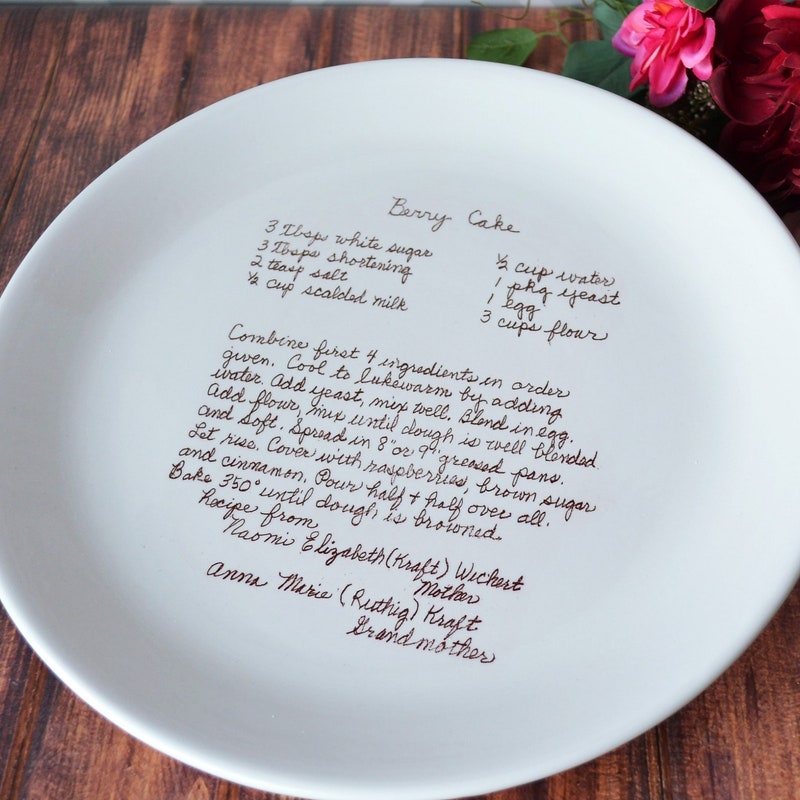 Berry Cake
3 Tbsps white sugar
3 Tbsps shortening
2 teasp salt
½ cup scalded milk
½ cup water
1 pkg yeast
1 egg
3 cups flour
Combine first 4 ingredients in order
given. Cool to lukewarm by adding
water. Add yeast, mix well. Blend in egg.
Add flour, mix until dough is well blended
and soft. Spread in 8" or 9" greased pans.
Let rise. Cover with raspberries, brown sugar
and cinnamon. Pour half + half over all.
Bake 350° until dough is browned.
Recipe from
Naomi Elizabeth (Kraft) Wichert
Mother
Anna Marie (Ruthig) Kraft
Grandmother